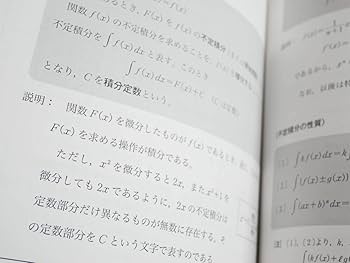 であるとき, F(x)を f(x) の不定積分
関数 f(x) の不定積分を求めることを, f(x) を
不定積分を ∫f(x)dx と表す。このとき
∫f(x)dx=F(x)+C
となり, C を積分定数という。
説明: 関数 F(x) を微分したものが f(x) であるとき,
F(x) を求める操作が積分である。
ただし, x² を微分すると 2x, また x²+1 を
微分しても 2x であるように, 2x の不定積分は
定数部分だけ異なるものが無数に存在する。そ
の定数部分を C という文字で表すのである
であるから,
なお, 以後は特
不定積分の性質
[1] ∫kf(x)dx=k
[2] ∫{f(x)±g(x)}
[3] ∫(ax+b)ⁿdx=
注 [1], [2] より, k,
∫{kf(x)+